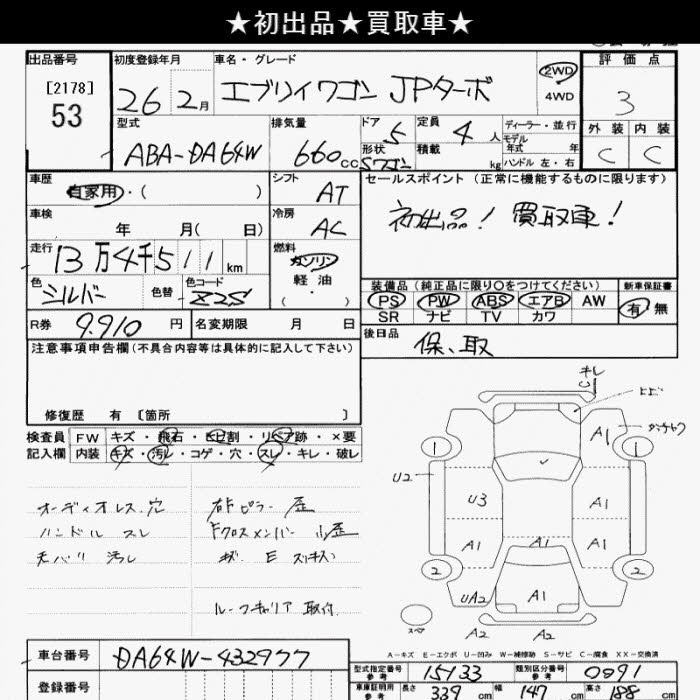 ★初出品★買取車★
出品番号
[2178]
53
初度登録年月
26年 2月
車名・グレード
エブリイワゴン JPターボ
2WD
4WD
評価点
3
外装 内装
C C
型式
ABA-DA64W
排気量
660cc
ドア 5
形状 5ワゴン
定員 4人
積載 kg
ディーラー・並行
モデル年式 年
ハンドル 左・右
車歴
自家用・( )
シフト
AT
セールスポイント (正常に機能するものに限ります)
初出品! 買取車!
車検
年 月( 日)
冷房
AC
走行
13万4千511km
燃料
ガソリン
軽油
( ・ )
色
シルバー
色替
色コード
Z2S
装備品 (純正品に限り○をつけてください)
PS PW ABS エアB AW
SR ナビ TV カワ
新車保証書
有 無
R券 9,910円
名変期限 月 日
後日品
保、取
注意事項申告欄(不具合内容等は具体的に記入して下さい)
修復歴 有 〔箇所 〕
検査員記入欄
FW キズ・飛石・ヒビ割・リペア跡・×要
内装 キズ・汚レ・コゲ・穴・スレ・キレ・破レ
オーディオレス、穴
ハンドル スレ
天バリ 汚レ
右Fピラー 歪
Fクロスメンバー 小歪
ルーフキャリア 取付
キレ
ヒビ
A1
1 1
U2
U3
A1
A1 A1 A1
2 2
UA2
A1
スペア
A2 A2
A-キズ E-エクボ U-凹み W-補修跡 S-サビ C-腐食 XX-交換済
車台番号
DA64W-432977
登録番号
型式指定番号 参考
15133
類別区分番号 参考
0091
車庫証明用 参考
長さ 339cm 幅 147cm 高さ 188cm